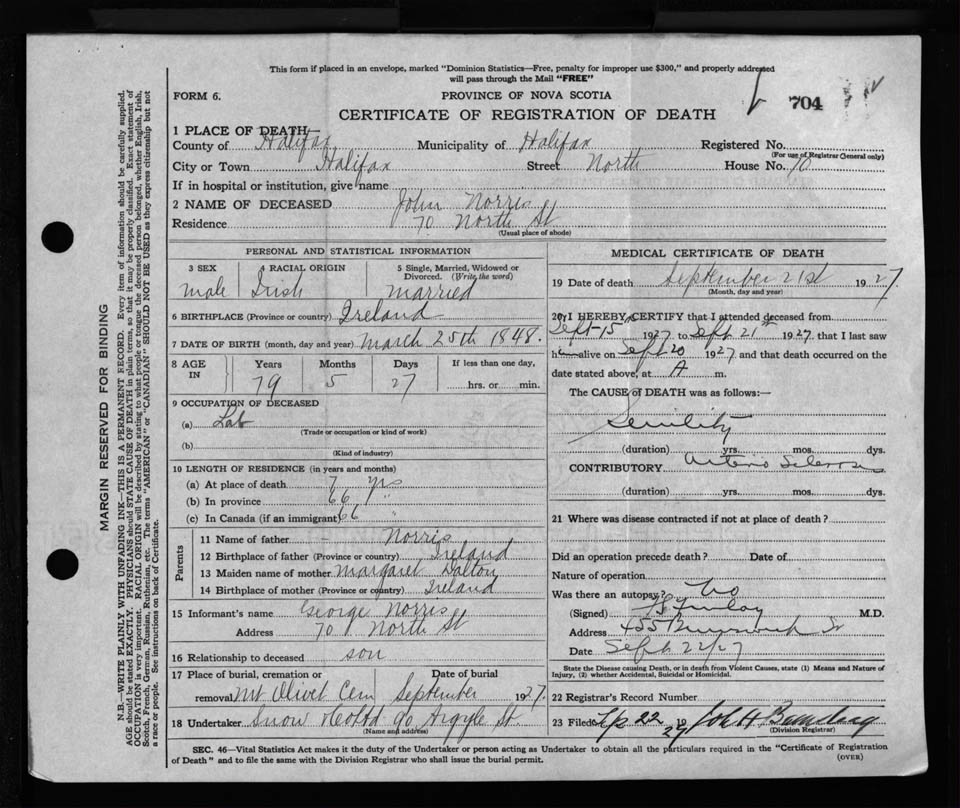 This form if placed in an envelope, marked "Dominion Statistics—Free, penalty for improper use $300," and properly addressed
will pass through the Mail "FREE"
704
FORM 6.
PROVINCE OF NOVA SCOTIA
CERTIFICATE OF REGISTRATION OF DEATH
1 PLACE OF DEATH
County of Halifax Municipality of Halifax Registered No.
(For use of Registrar General only)
City or Town Halifax Street North House No. 70
If in hospital or institution, give name
2 NAME OF DECEASED John Norris
Residence 70 North St
(Usual place of abode)
PERSONAL AND STATISTICAL INFORMATION
3 SEX 4 RACIAL ORIGIN 5 Single, Married, Widowed or Divorced. (Write the word)
Male Irish Married
6 BIRTHPLACE (Province or country) Ireland
7 DATE OF BIRTH (month, day and year) March 25th 1848.
8 AGE IN Years Months Days If less than one day,
79 5 27 hrs. or min.
9 OCCUPATION OF DECEASED
(a) Lab
(Trade or occupation or kind of work)
(b)
(Kind of industry)
10 LENGTH OF RESIDENCE (in years and months)
(a) At place of death 7 yrs
(b) In province 66 "
(c) In Canada (if an immigrant) 66 "
Parents
11 Name of father - Norris
12 Birthplace of father (Province or country) Ireland
13 Maiden name of mother Margaret Dalton
14 Birthplace of mother (Province or country) Ireland
15 Informant's name George Norris
Address 70 North St
16 Relationship to deceased son
17 Place of burial, cremation or Date of burial
removal Mt Olivet Cem September 1927.
18 Undertaker Snow & Co Ltd 90 Argyle St.
(Name and address)
MEDICAL CERTIFICATE OF DEATH
19 Date of death September 21st 1927
(Month, day and year)
20 I HEREBY CERTIFY that I attended deceased from
Sept 15 1927 to Sept 21st 1927. that I last saw
him alive on Sept 20 1927 and that death occurred on the
date stated above, at A m.
The CAUSE of DEATH was as follows:—
Senility
(duration) yrs. mos. dys.
CONTRIBUTORY Arterio Sclerosis
(duration) yrs. mos. dys.
21 Where was disease contracted if not at place of death?
Did an operation precede death? Date of
Nature of operation
Was there an autopsy? No
(Signed) Finlay M.D.
Address 455 Brunswick St
Date Sept 22/27
State the Disease causing Death, or in death from Violent Causes, state (1) Means and Nature of
Injury, (2) whether Accidental, Suicidal or Homicidal.
22 Registrar's Record Number
23 Filed 22 1927 John H
(Division Registrar)
SEC. 46—Vital Statistics Act makes it the duty of the Undertaker or person acting as Undertaker to obtain all the particulars required in the "Certificate of Registration
of Death" and to file the same with the Division Registrar who shall issue the burial permit.
(OVER)
MARGIN RESERVED FOR BINDING
N.B.—WRITE PLAINLY WITH UNFADING INK—THIS IS A PERMANENT RECORD. Every item of information should be carefully supplied.
AGE should be stated EXACTLY. PHYSICIANS should STATE CAUSE OF DEATH in plain terms, so that it may be properly classified. Exact statement of
OCCUPATION is very important. RACIAL ORIGIN will be described by stating to what people or tongue the deceased person belonged, whether English, Irish,
Scotch, French, German, Russian, Ruthenian, etc. The terms "AMERICAN" or "CANADIAN" SHOULD NOT BE USED as they express citizenship but not
a race or people. See instructions on back of Certificate.